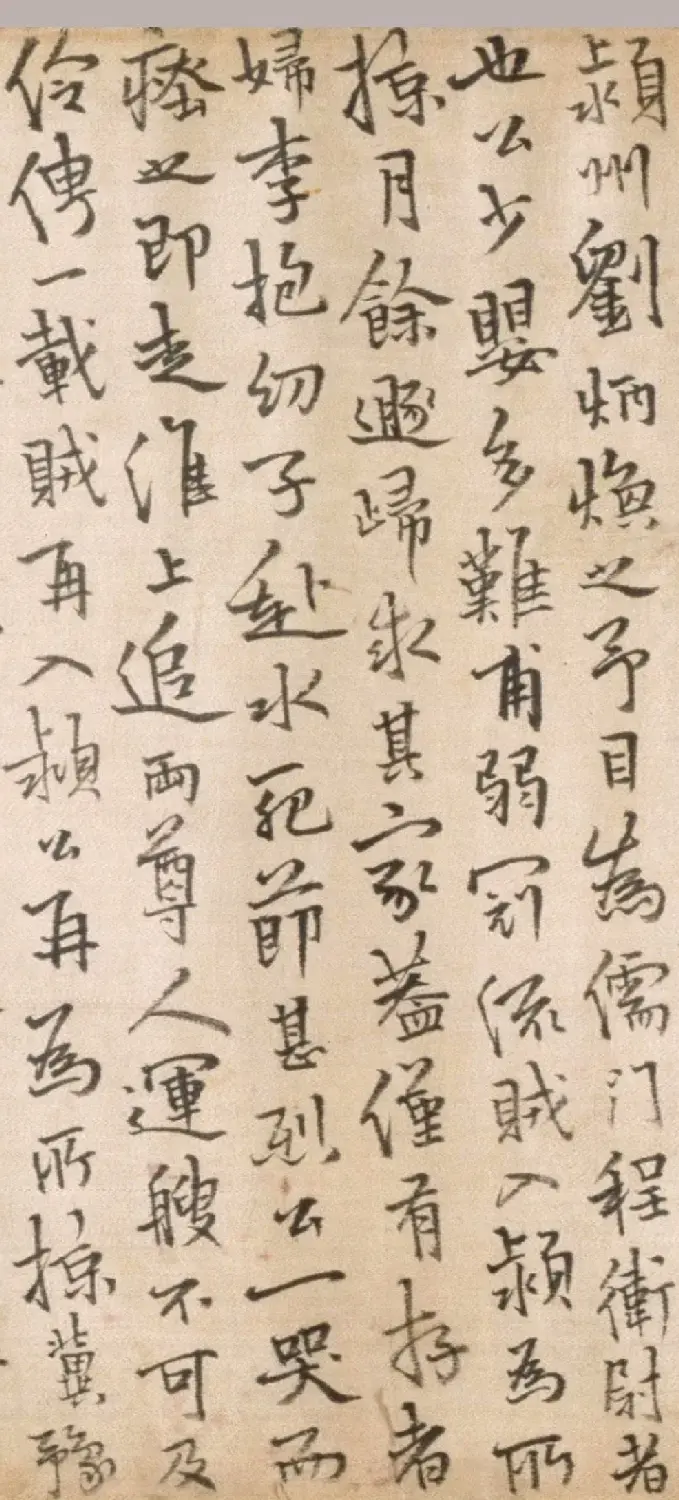 潁州劉炳煥之予目為儒門程衛尉者
也公少嬰多難甫弱冠流賊入潁為所
掠月餘遯歸求其家蓋僅有存者
婦李抱幼子赴水死節甚烈公一哭而
瘞之即走淮上追兩尊人運艘不可及
伶俜一載賊再入潁公再為所掠冀豫